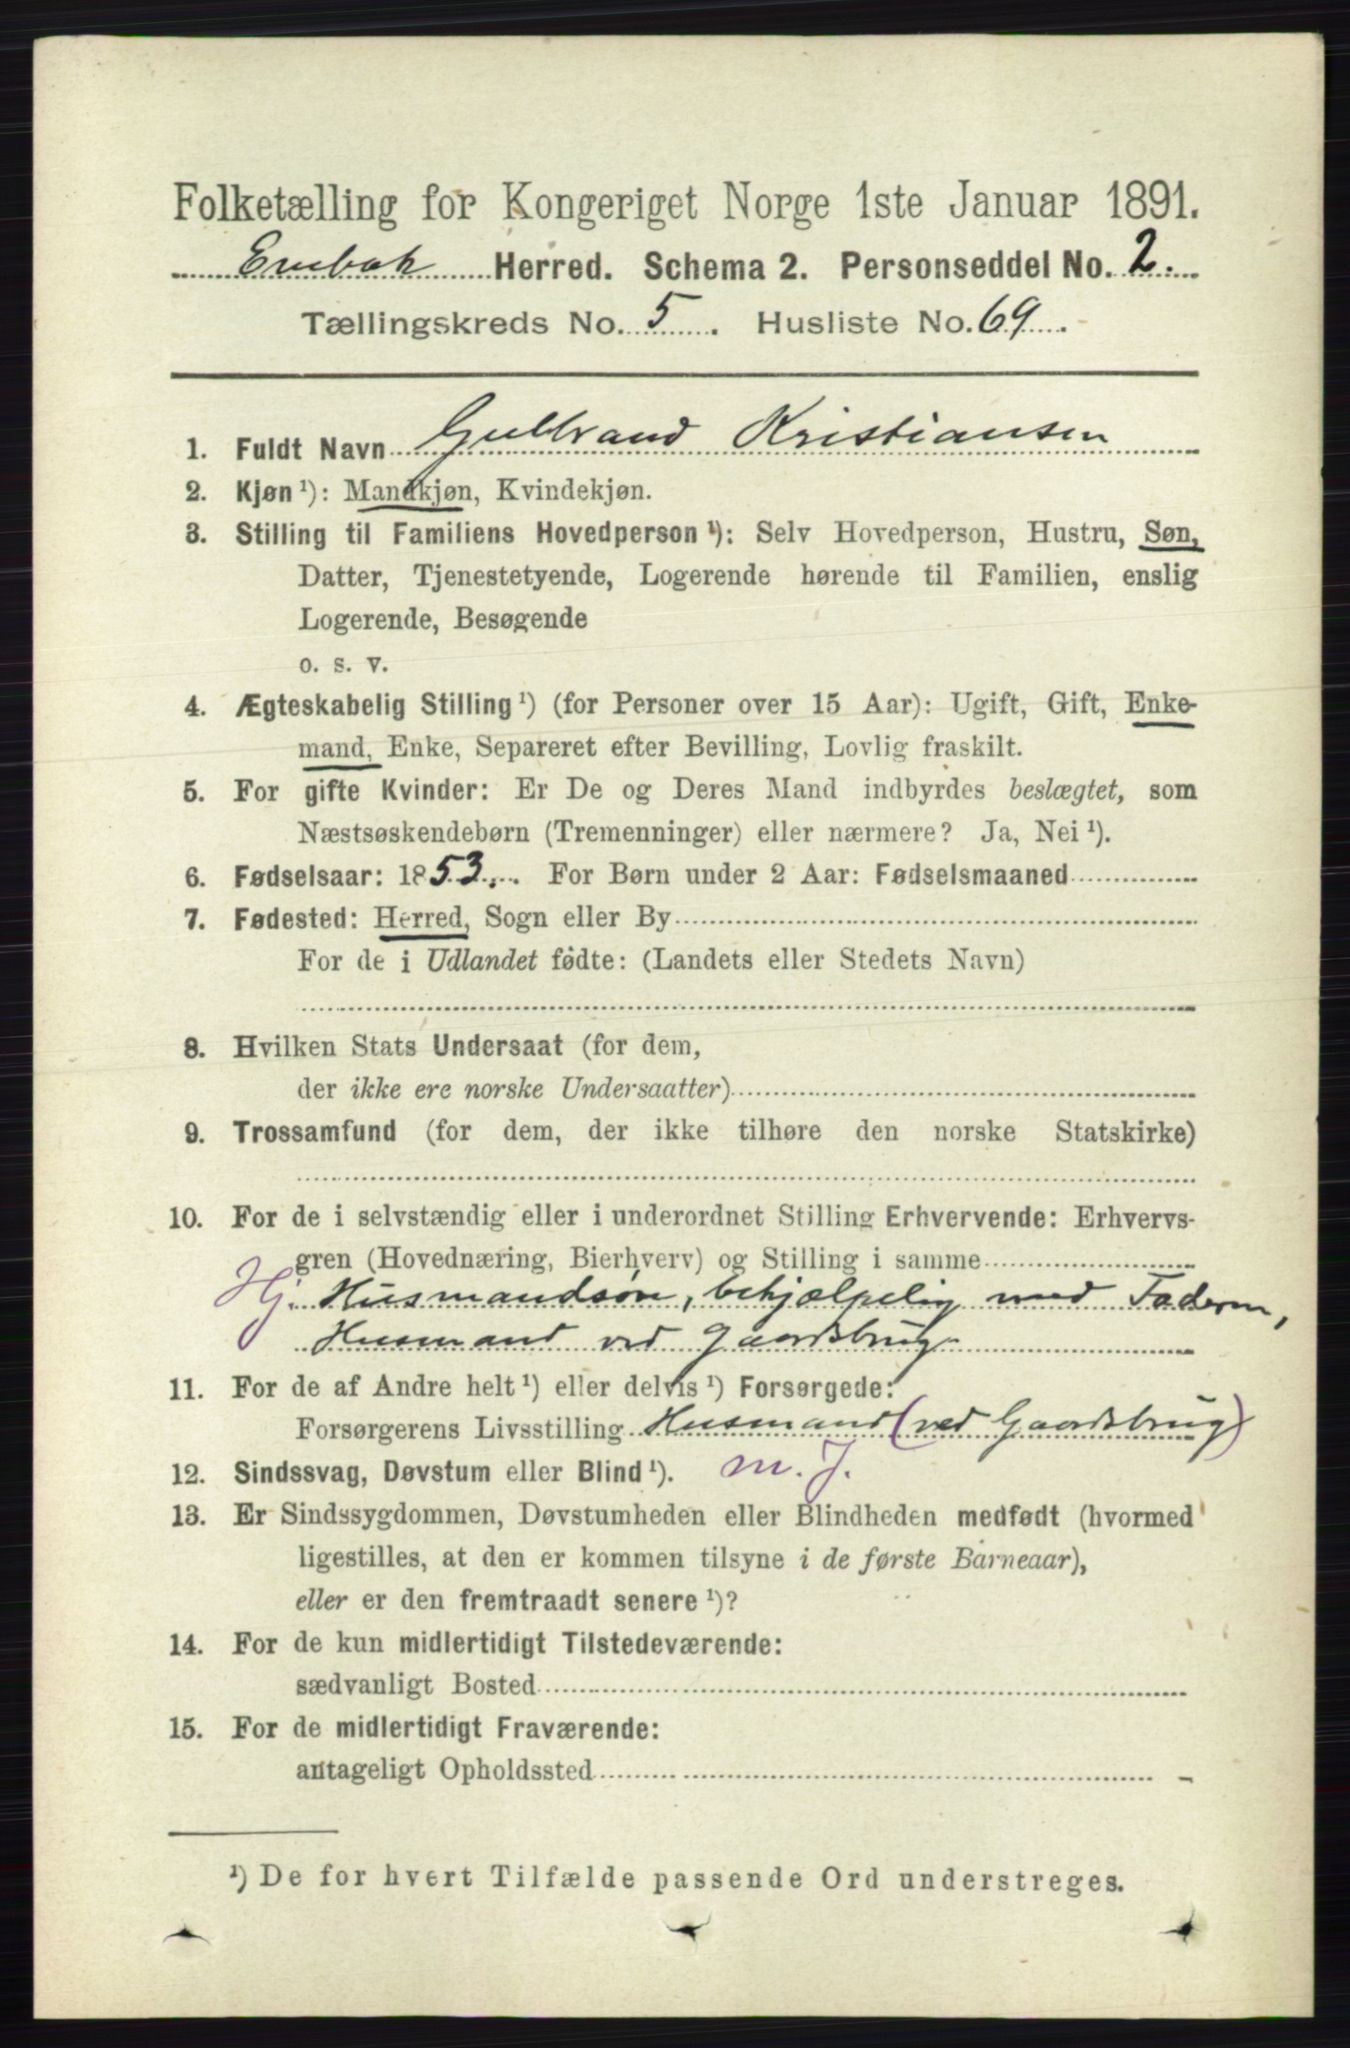 Folketælling for Kongeriget Norge 1ste Januar 1891.
Enebak Herred. Schema 2. Personseddel No. 2.
Tællingskreds No. 5. Husliste No. 69.
1. Fuldt Navn Gulbrand Kristiansen
2. Kjøn ¹): Mandkjøn, Kvindekjøn.
3. Stilling til Familiens Hovedperson ¹): Selv Hovedperson, Hustru, Søn,
Datter, Tjenestetyende, Logerende hørende til Familien, enslig
Logerende, Besøgende
o. s. v.
4. Ægteskabelig Stilling ¹) (for Personer over 15 Aar): Ugift, Gift, Enke-
mand, Enke, Separeret efter Bevilling, Lovlig fraskilt.
5. For gifte Kvinder: Er De og Deres Mand indbyrdes beslægtet, som
Næstsøskendebørn (Tremenninger) eller nærmere? Ja, Nei ¹).
6. Fødselsaar: 1853. For Børn under 2 Aar: Fødselsmaaned
7. Fødested: Herred, Sogn eller By
For de i Udlandet fødte: (Landets eller Stedets Navn)
8. Hvilken Stats Undersaat (for dem,
der ikke ere norske Undersaatter)
9. Trossamfund (for dem, der ikke tilhøre den norske Statskirke)
10. For de i selvstændig eller i underordnet Stilling Erhvervende: Erhvervs-
gren (Hovednæring, Bierhverv) og Stilling i samme
Hj. Husmandsøn, behjælpelig med Faderen,
Husmand ved Gaardsbrug
11. For de af Andre helt ¹) eller delvis ¹) Forsørgede:
Forsørgerens Livsstilling Husmand (ved Gaardsbrug)
12. Sindssvag, Døvstum eller Blind ¹). m. J.
13. Er Sindssygdommen, Døvstumheden eller Blindheden medfødt (hvormed
ligestilles, at den er kommen tilsyne i de første Barneaar),
eller er den fremtraadt senere ¹)?
14. For de kun midlertidigt Tilstedeværende:
sædvanligt Bosted
15. For de midlertidigt Fraværende:
antageligt Opholdssted
¹) De for hvert Tilfælde passende Ord understreges.